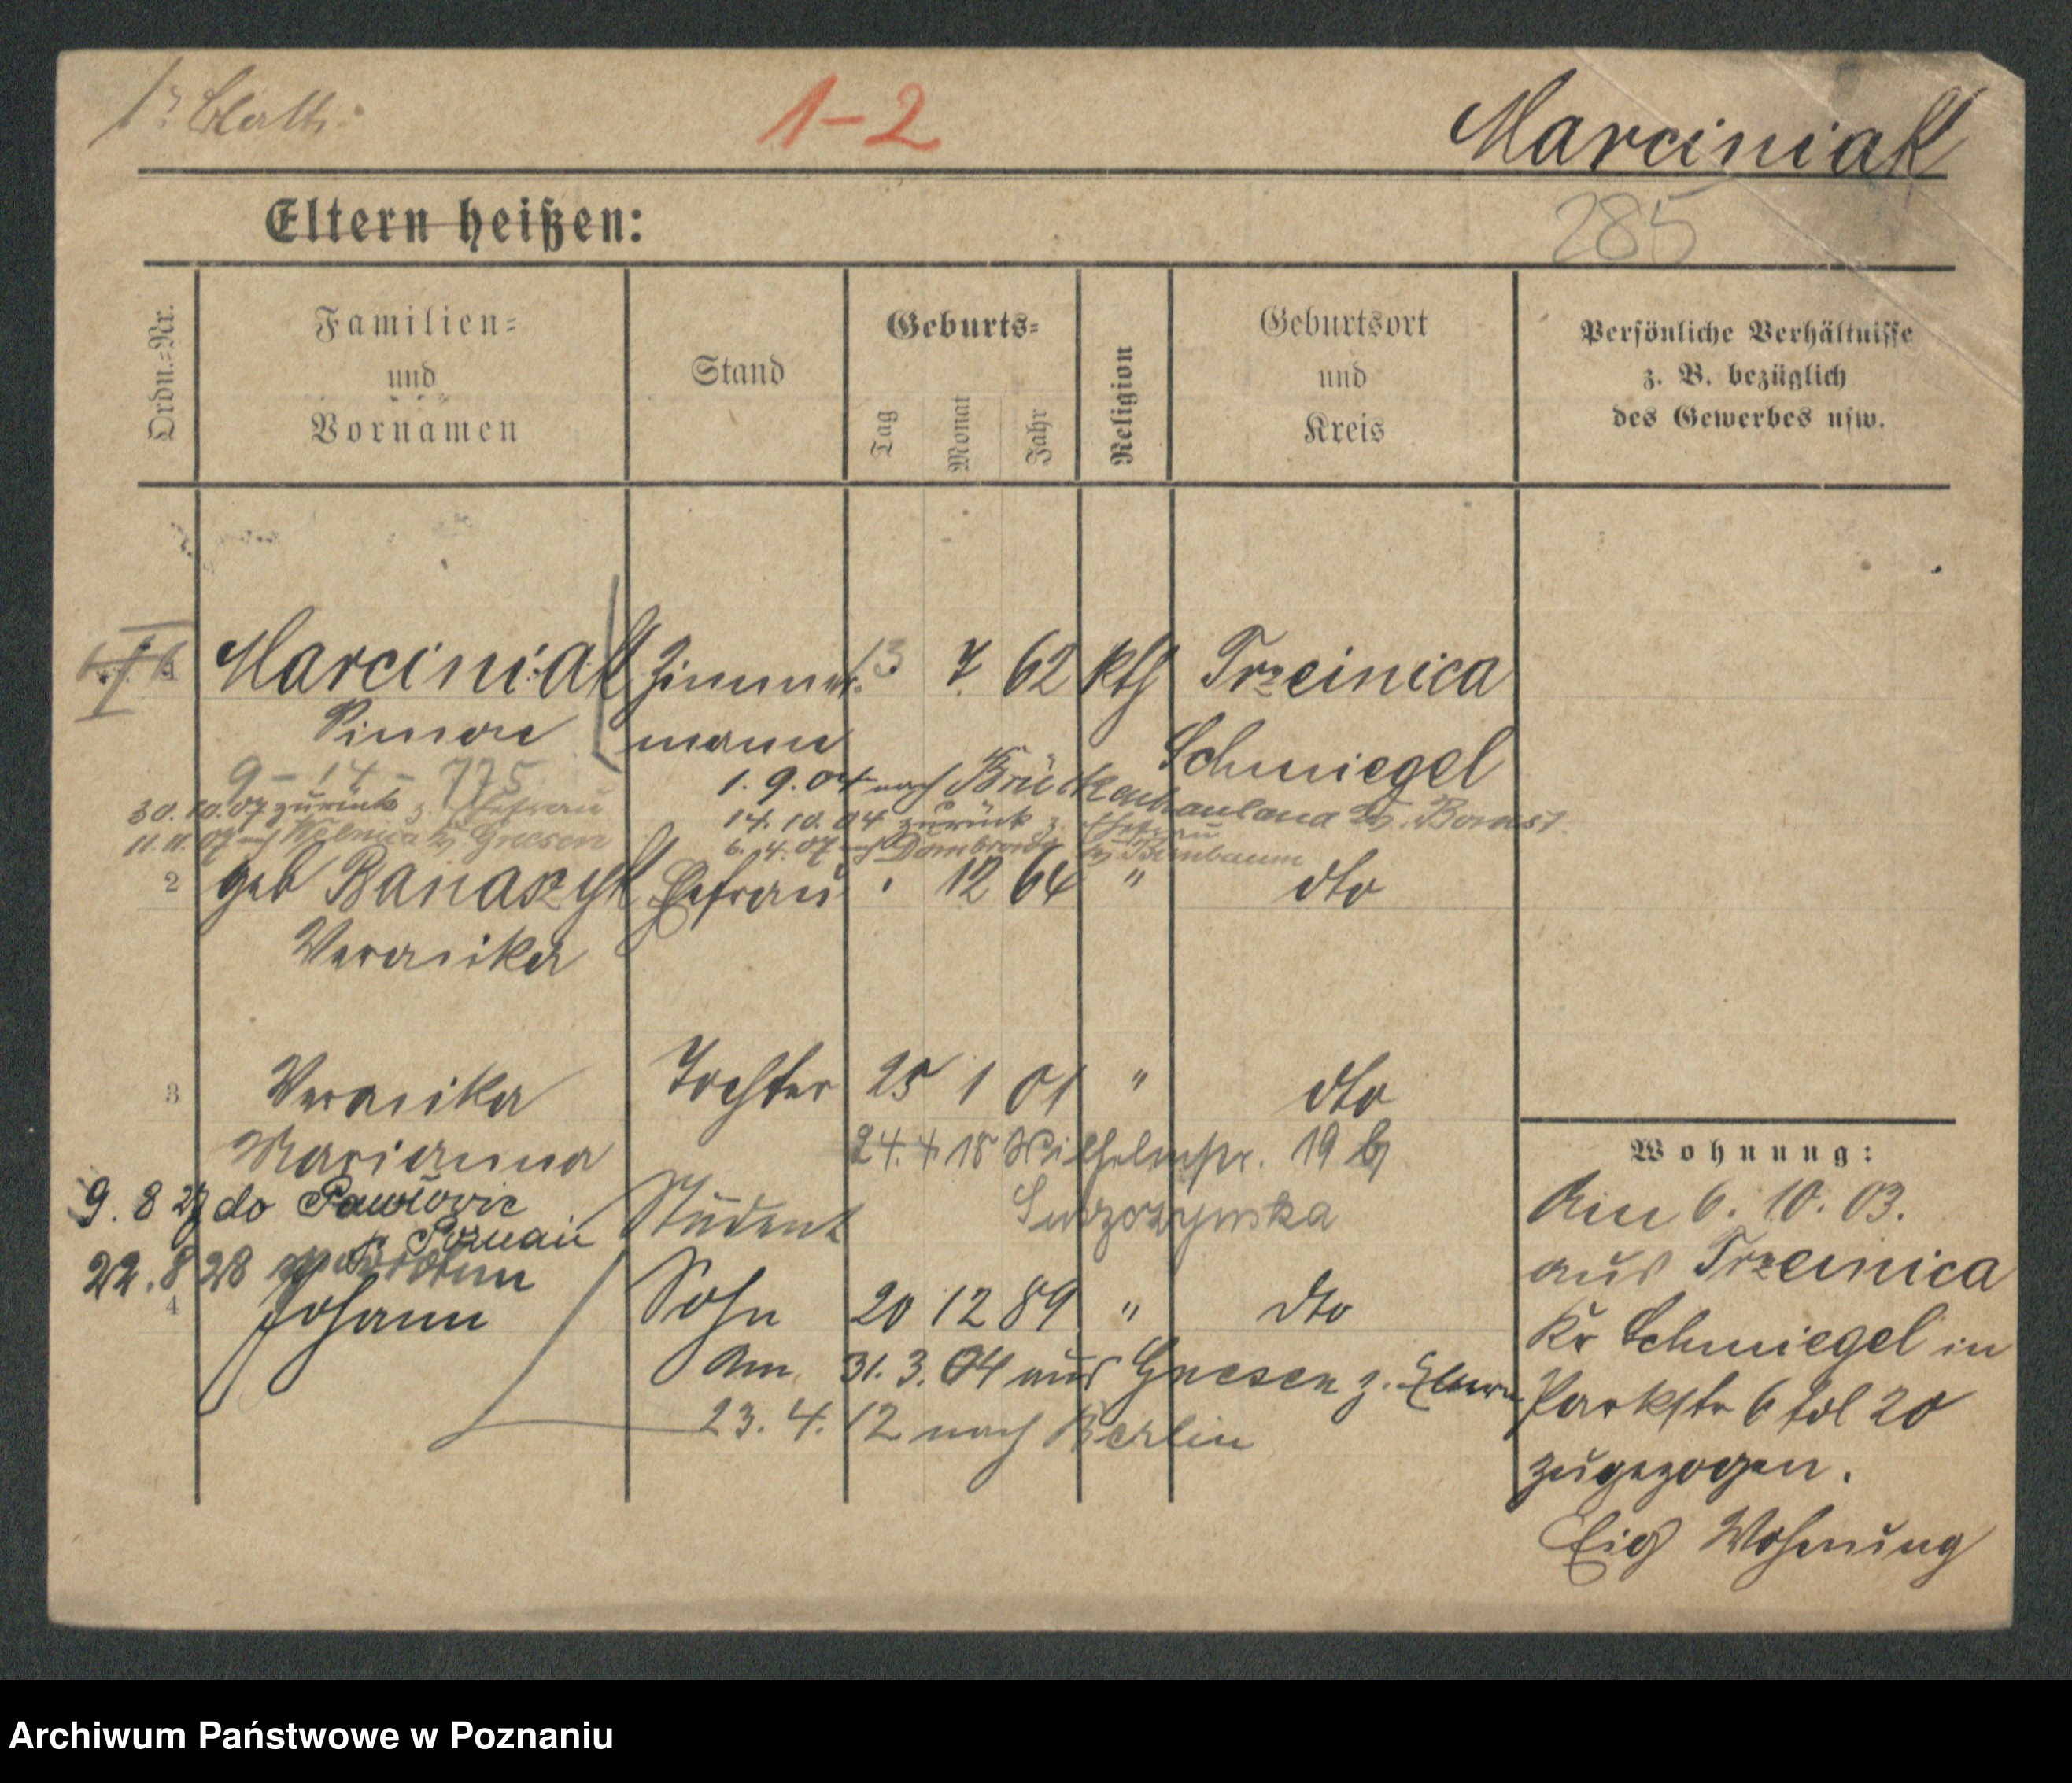 1-2
Marciniak
Eltern heißen:
285
Ordn.=Nr.
Familien=
und
Vornamen
Stand
Geburts=
Tag
Monat
Jahr
Religion
Geburtsort
und
Kreis
Persönliche Verhältnisse
z. B. bezüglich
des Gewerbes usw.
Marciniak Zimmer 13 7 62 kth Trzcinica
Simon mann Schmiegel
9 - 14 - 775
1. 9. 04 nach
30. 10. 07 zurück z. Ehefrau
14. 10. 04 zurück z. Ehefrau
11. 11. 07 nach Kr. Gnesen
6. 4. 07 nach Dombrowo Kr. Birnbaum
2 geb Banaszyk Ehefrau 12 64 " dto
Veronika
3 Veronika Tochter 25 1 01 " dto
Marianna 24. 4. 18 Wilhelmstr. 19 b
9. 8 27 do Student
Poznań
22. 8 28
4 Johann Sohn 20 12 89 " dto
Am 31. 3. 04 aus Gnesen z. Eltern
23. 4. 12 nach Berlin
Wohnung:
Am 6. 10. 03.
aus Trzcinica
Kr Schmiegel in
Parkstr 6 fol 20
zugezogen.
Eig Wohnung
Archiwum Państwowe w Poznaniu